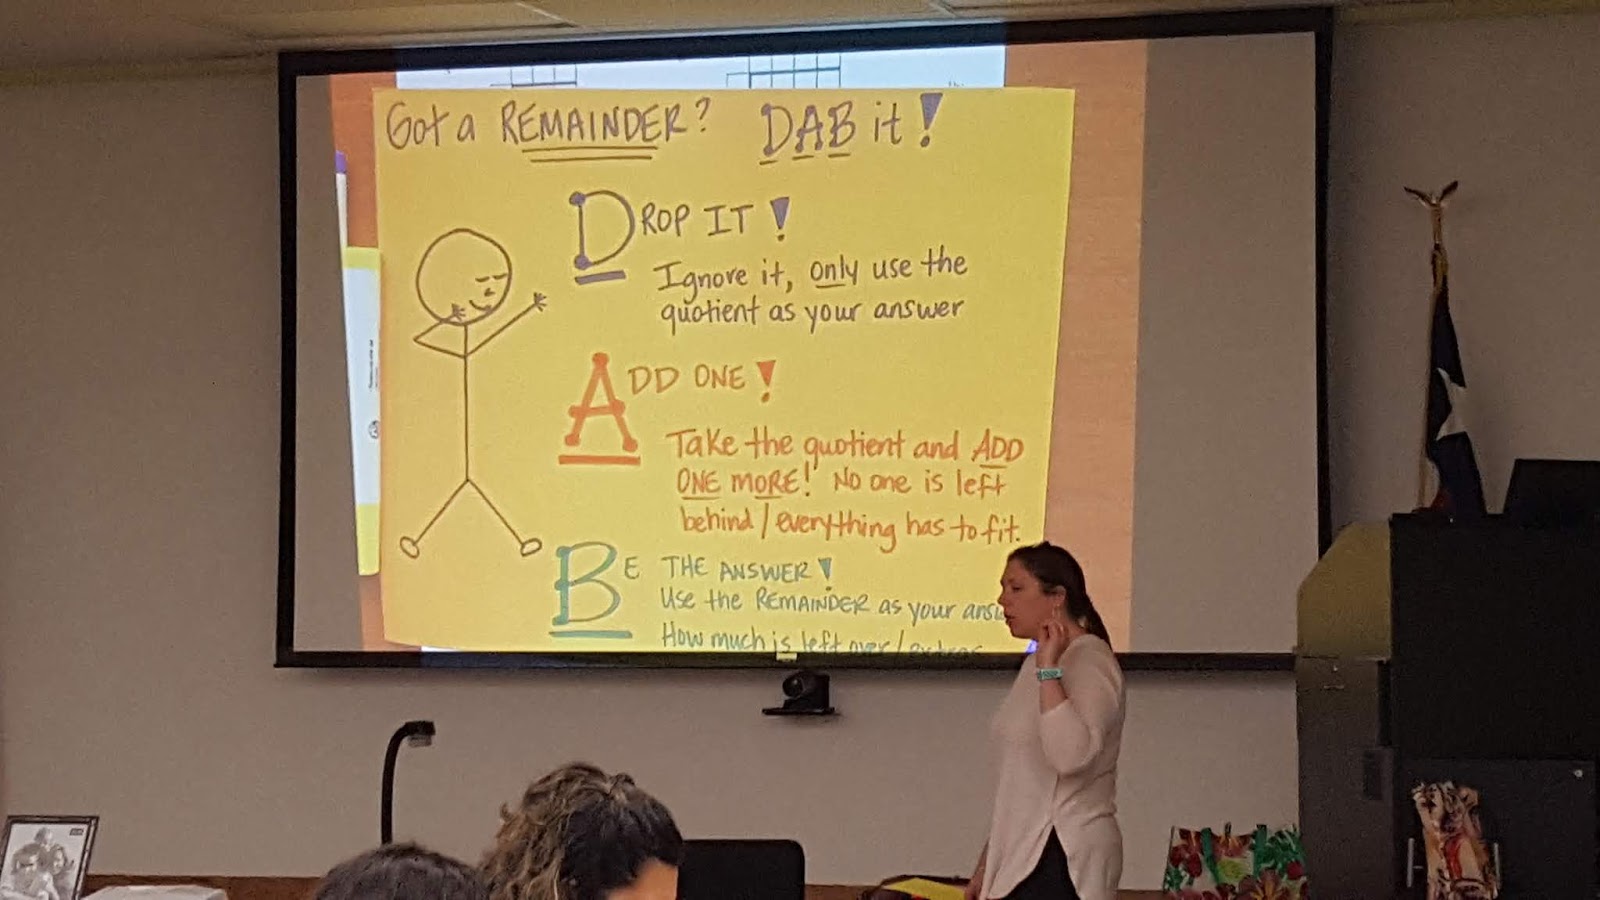 Got a REMAINDER? DAB it!
DROP IT!
Ignore it, only use the
quotient as your answer
ADD ONE!
Take the quotient and ADD
ONE MORE! No one is left
behind/everything has to fit.
BE THE ANSWER!
Use the REMAINDER as your
How much is left over/extras